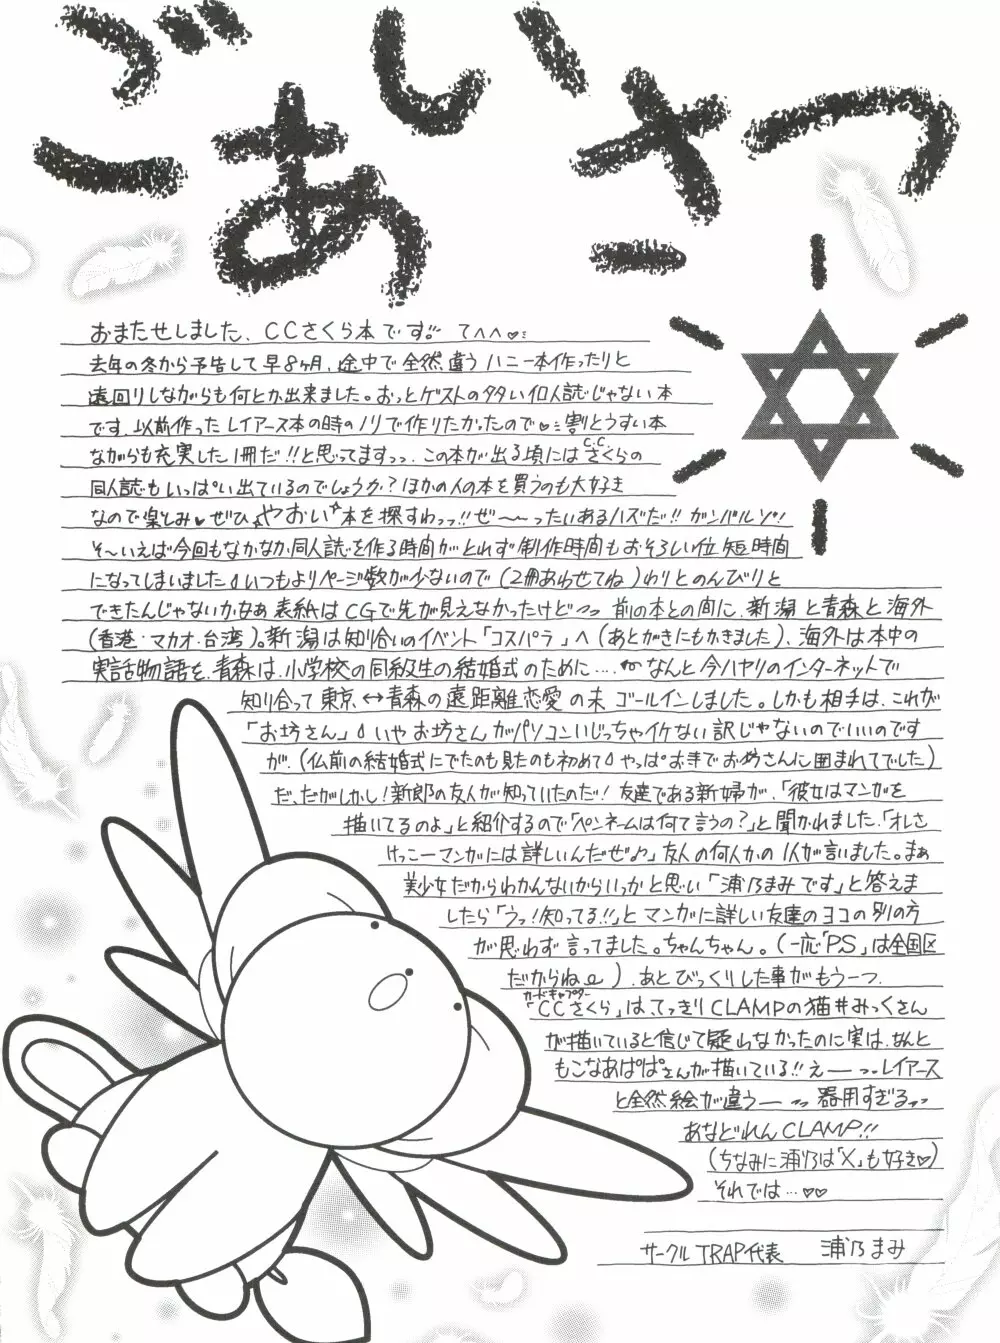 ごあいさつ
おまたせしました、CCさくら本です!! てへへ♡
去年の冬から予告して早8ヶ月、途中で全然違うハニー本作ったりと
遠回りしながらも何とか出来ました。おっとゲストの多い個人誌じゃない本
です。以前作ったレイアース本の時のノリで作りたかったので♡割とうすい本
ながらも充実した1冊だ!!と思ってますっっ。この本が出る頃にはC.C.さくらの
同人誌もいっぱい出ているのでしょうか?ほかの人の本を買うのも大好き
なので楽しみ♥ぜひ、やおい本を探すわっっ!!ぜ〜〜ったいあるハズだ!!ガンバルゾ!
そ〜いえば今回もなかなか同人誌を作る時間がとれず制作時間もおそろしい位短時間
になってしまいました。いつもよりページ数が少ないので(2冊あわせてね)わりとのんびりと
できたんじゃないかなぁ 表紙はCGで先が見えなかったけどーっっ 前の本との間に、新潟と青森と海外
(香港・マカオ・台湾)。新潟は知り合いのイベント「コスパラ」へ(あとがきにもかきました)、海外は本中の
実話物語を、青森は、小学校の同級生の結婚式のために‥‥なんと今ハヤリのインターネットで
知り合って東京↔青森の遠距離恋愛の末 ゴールインしました。しかも相手は、これが
「お坊さん」いやお坊さんがパソコンいじっちゃイケない訳じゃないのでいいのです
が、(仏前の結婚式にでたのも見たのも初めて やっぱお寺でお坊さんに囲まれてでした)
だ、だがしかし!新郎の友人が知っていたのだ!友達である新婦が、「彼女はマンガを
描いてるのよ」と紹介するので「ペンネームは何て言うの?」と聞かれました、「オレさ
けっこーマンガには詳しいんだぜ♪」友人の何人かの1人が言いました。まぁ
美少女だからわかんないからいっかと思い「浦乃まみです」と答えま
したら「うっ!知ってる!!」とマンガに詳しい友達のヨコの別の方
が思わず言ってました。ちゃんちゃん。(一応「P.S」は全国区
だからね)、あとびっくりした事がもう一つ
「CCさくら」は、てっきりCLAMPの猫井みっくさん
カードキャプター
が描いていると信じて疑わなかったのに実は、なんと
もこなあぱぱさんが描いている!!えー‥レイアース
と全然絵が違うーっっ 器用すぎるっっ
あなどれんCLAMP!!
(ちなみに浦乃は「X」も好き♡)
それでは‥♡♡
サークルTRAP代表 浦乃まみ